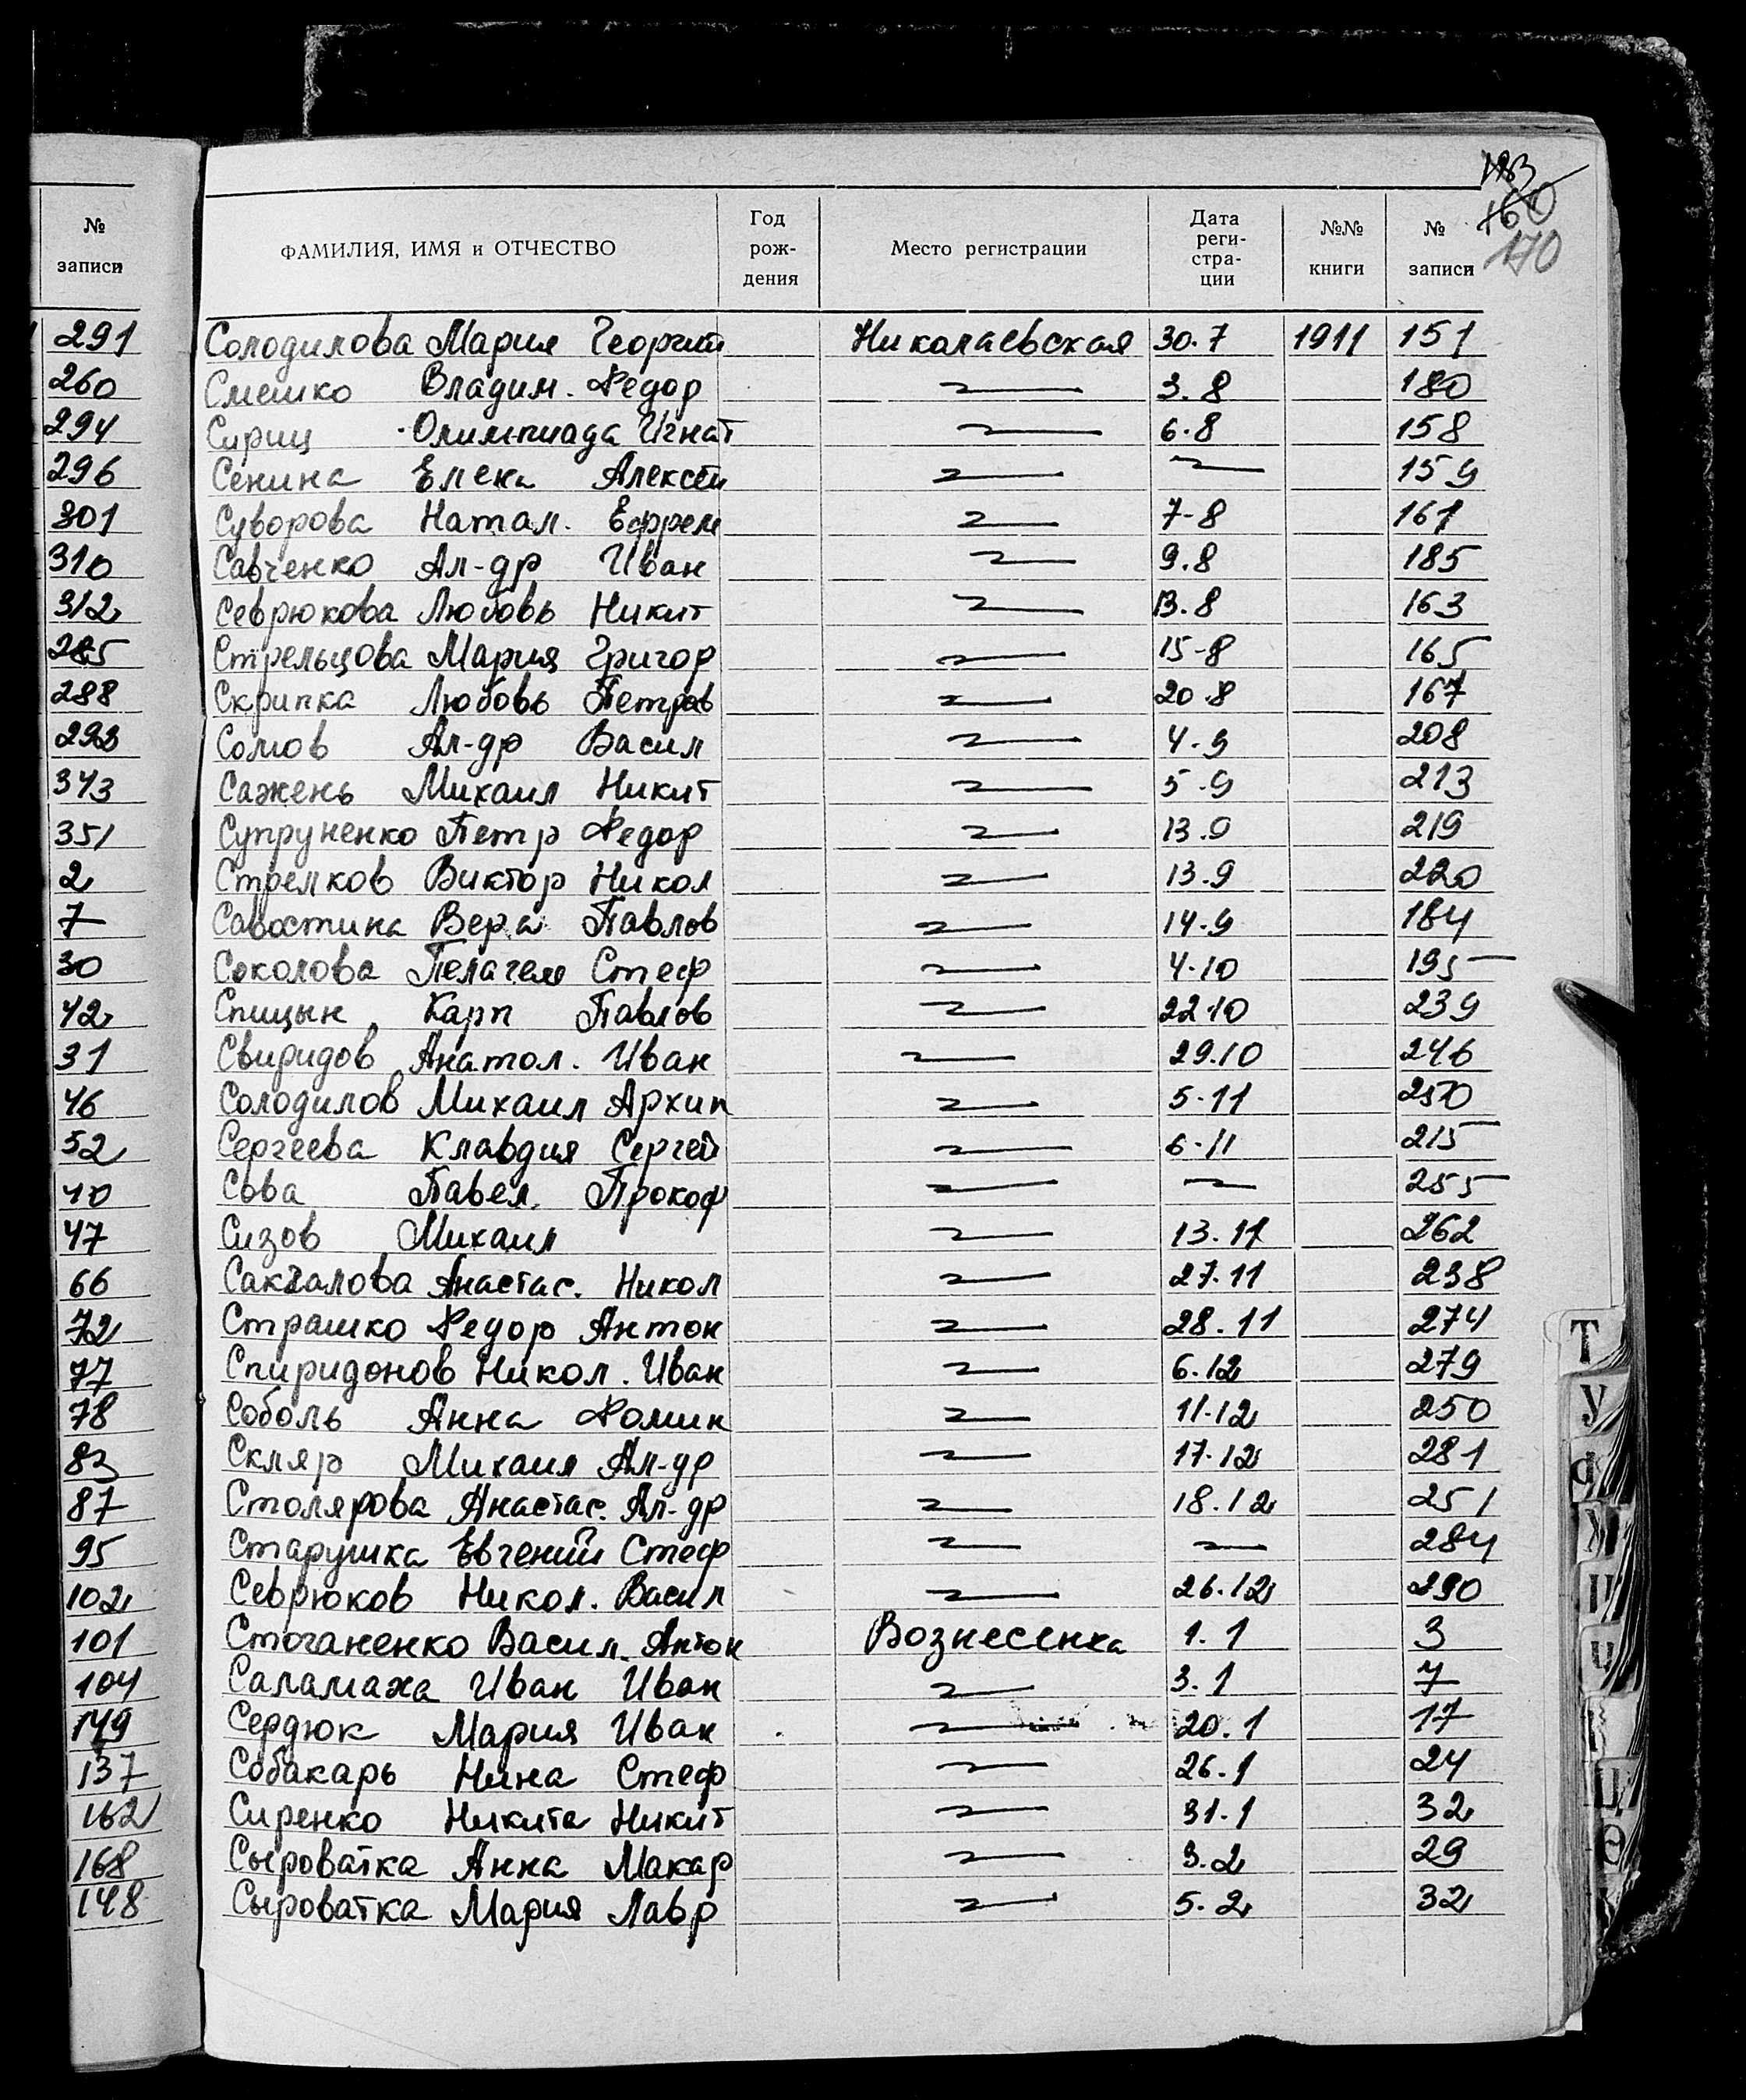 183
160
170
№ записи
291
260
294
296
301
310
312
285
288
293
343
351
2
7
30
42
31
46
52
40
47
66
72
77
78
83
87
95
102
101
104
149
137
162
168
148
ФАМИЛИЯ, ИМЯ и ОТЧЕСТВО Год рождения Место регистрации Дата регистрации №№ книги № записи
Солодилова Мария Георгий Николаевская 30.7 1911 151
Смешко Владим. Федор 3.8 180
Сириц Олимпиада Игнат 6.8 158
Сенина Елена Алексей 159
Суворова Натал. Ефрем 7-8 161
Савченко Ал-др Иван 9.8 185
Севрюкова Любовь Никит 13.8 163
Стрельцова Мария Григор 15-8 165
Скрипка Любовь Петров 20.8 167
Сомов Ал-др Васил 4.9 208
Сажень Михаил Никит 5.9 213
Супруненко Петр Федор 13.9 219
Стрелков Виктор Никол 13.9 220
Савостина Вера Павлов 14.9 184
Соколова Пелагея Стеф 4.10 195
Спицын Карп Павлов 22.10 239
Свиридов Анатол. Иван 29.10 246
Солодилов Михаил Архип 5.11 250
Сергеева Клавдия Сергей 6-11 215
Сова Павел. Прокоф 255
Сизов Михаил 13.11 262
Анастас. Никол 27.11 238
Страшко Федор Антон 28.11 274
Спиридонов Никол. Иван 6.12 279
Соболь Анна Фомин 11.12 250
Скляр Михаил Ал-др 17.12 281
Столярова Анастас. Ал-др 18.12 251
Старушка Евгений Стеф 284
Севрюков Никол. Васил 26.12 290
Стоганенко Васил. Антон Вознесенка 1.1 3
Саламаха Иван Иван 3.1 7
Сердюк Мария Иван 20.1 17
Собакарь Нина Стеф 26.1 24
Сиренко Никита Никит 31.1 32
Сыроватка Анна Макар 3.2 29
Сыроватка Мария Лавр 5.2 32
Т
У
Ф